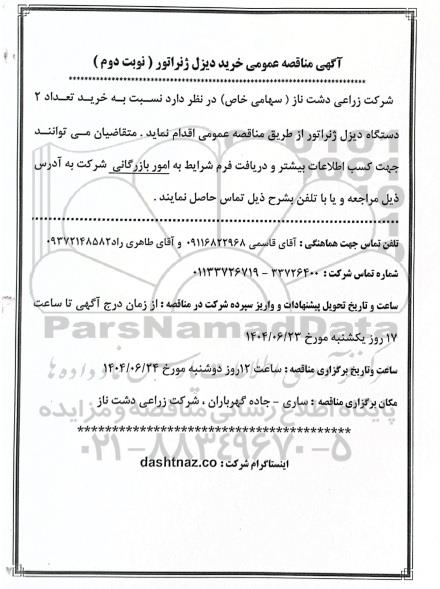 آگهی مناقصه عمومی خرید دیزل ژنراتور ( نوبت دوم )
شرکت زراعی دشت ناز ( سهامی خاص) در نظر دارد نسبت به خرید تعداد ۲
دستگاه دیزل ژنراتور از طریق مناقصه عمومی اقدام نماید . متقاضیان می توانند
جهت کسب اطلاعات بیشتر و دریافت فرم شرایط به امور بازرگانی شرکت به آدرس
ذیل مراجعه و یا با تلفن بشرح ذیل تماس حاصل نمایند .
تلفن تماس جهت هماهنگی : آقای قاسمی ۰۹۱۱۶۸۲۲۹۶۸ و آقای طاهری راد۰۹۳۷۲۱۴۸۵۸۲
شماره تماس شرکت : ۳۳۷۲۶۴۰۰ - ۰۱۱۳۳۷۲۶۷۱۹
ساعت و تاریخ تحویل پیشنهادات و واریز سپرده شرکت در مناقصه : از زمان درج آگهی تا ساعت
ParsNamadData
۱۷ روز یکشنبه مورخ ۱۴۰۴/۰۶/۲۳
ساعت وتاریخ برگزاری مناقصه : ساعت ۱۲روز دوشنبه مورخ ۱۴۰۴/۰۶/۲۴
مکان برگزاری مناقصه : ساری - جاده گهرباران ، شرکت زراعی دشت ناز
پایگاه اطلاع رسانی مناقصه و مزایده
****************************************
۰۲۱-۸۸۳۴۹۶۷۰-۵
اینستاگرام شرکت : dashtnaz.co